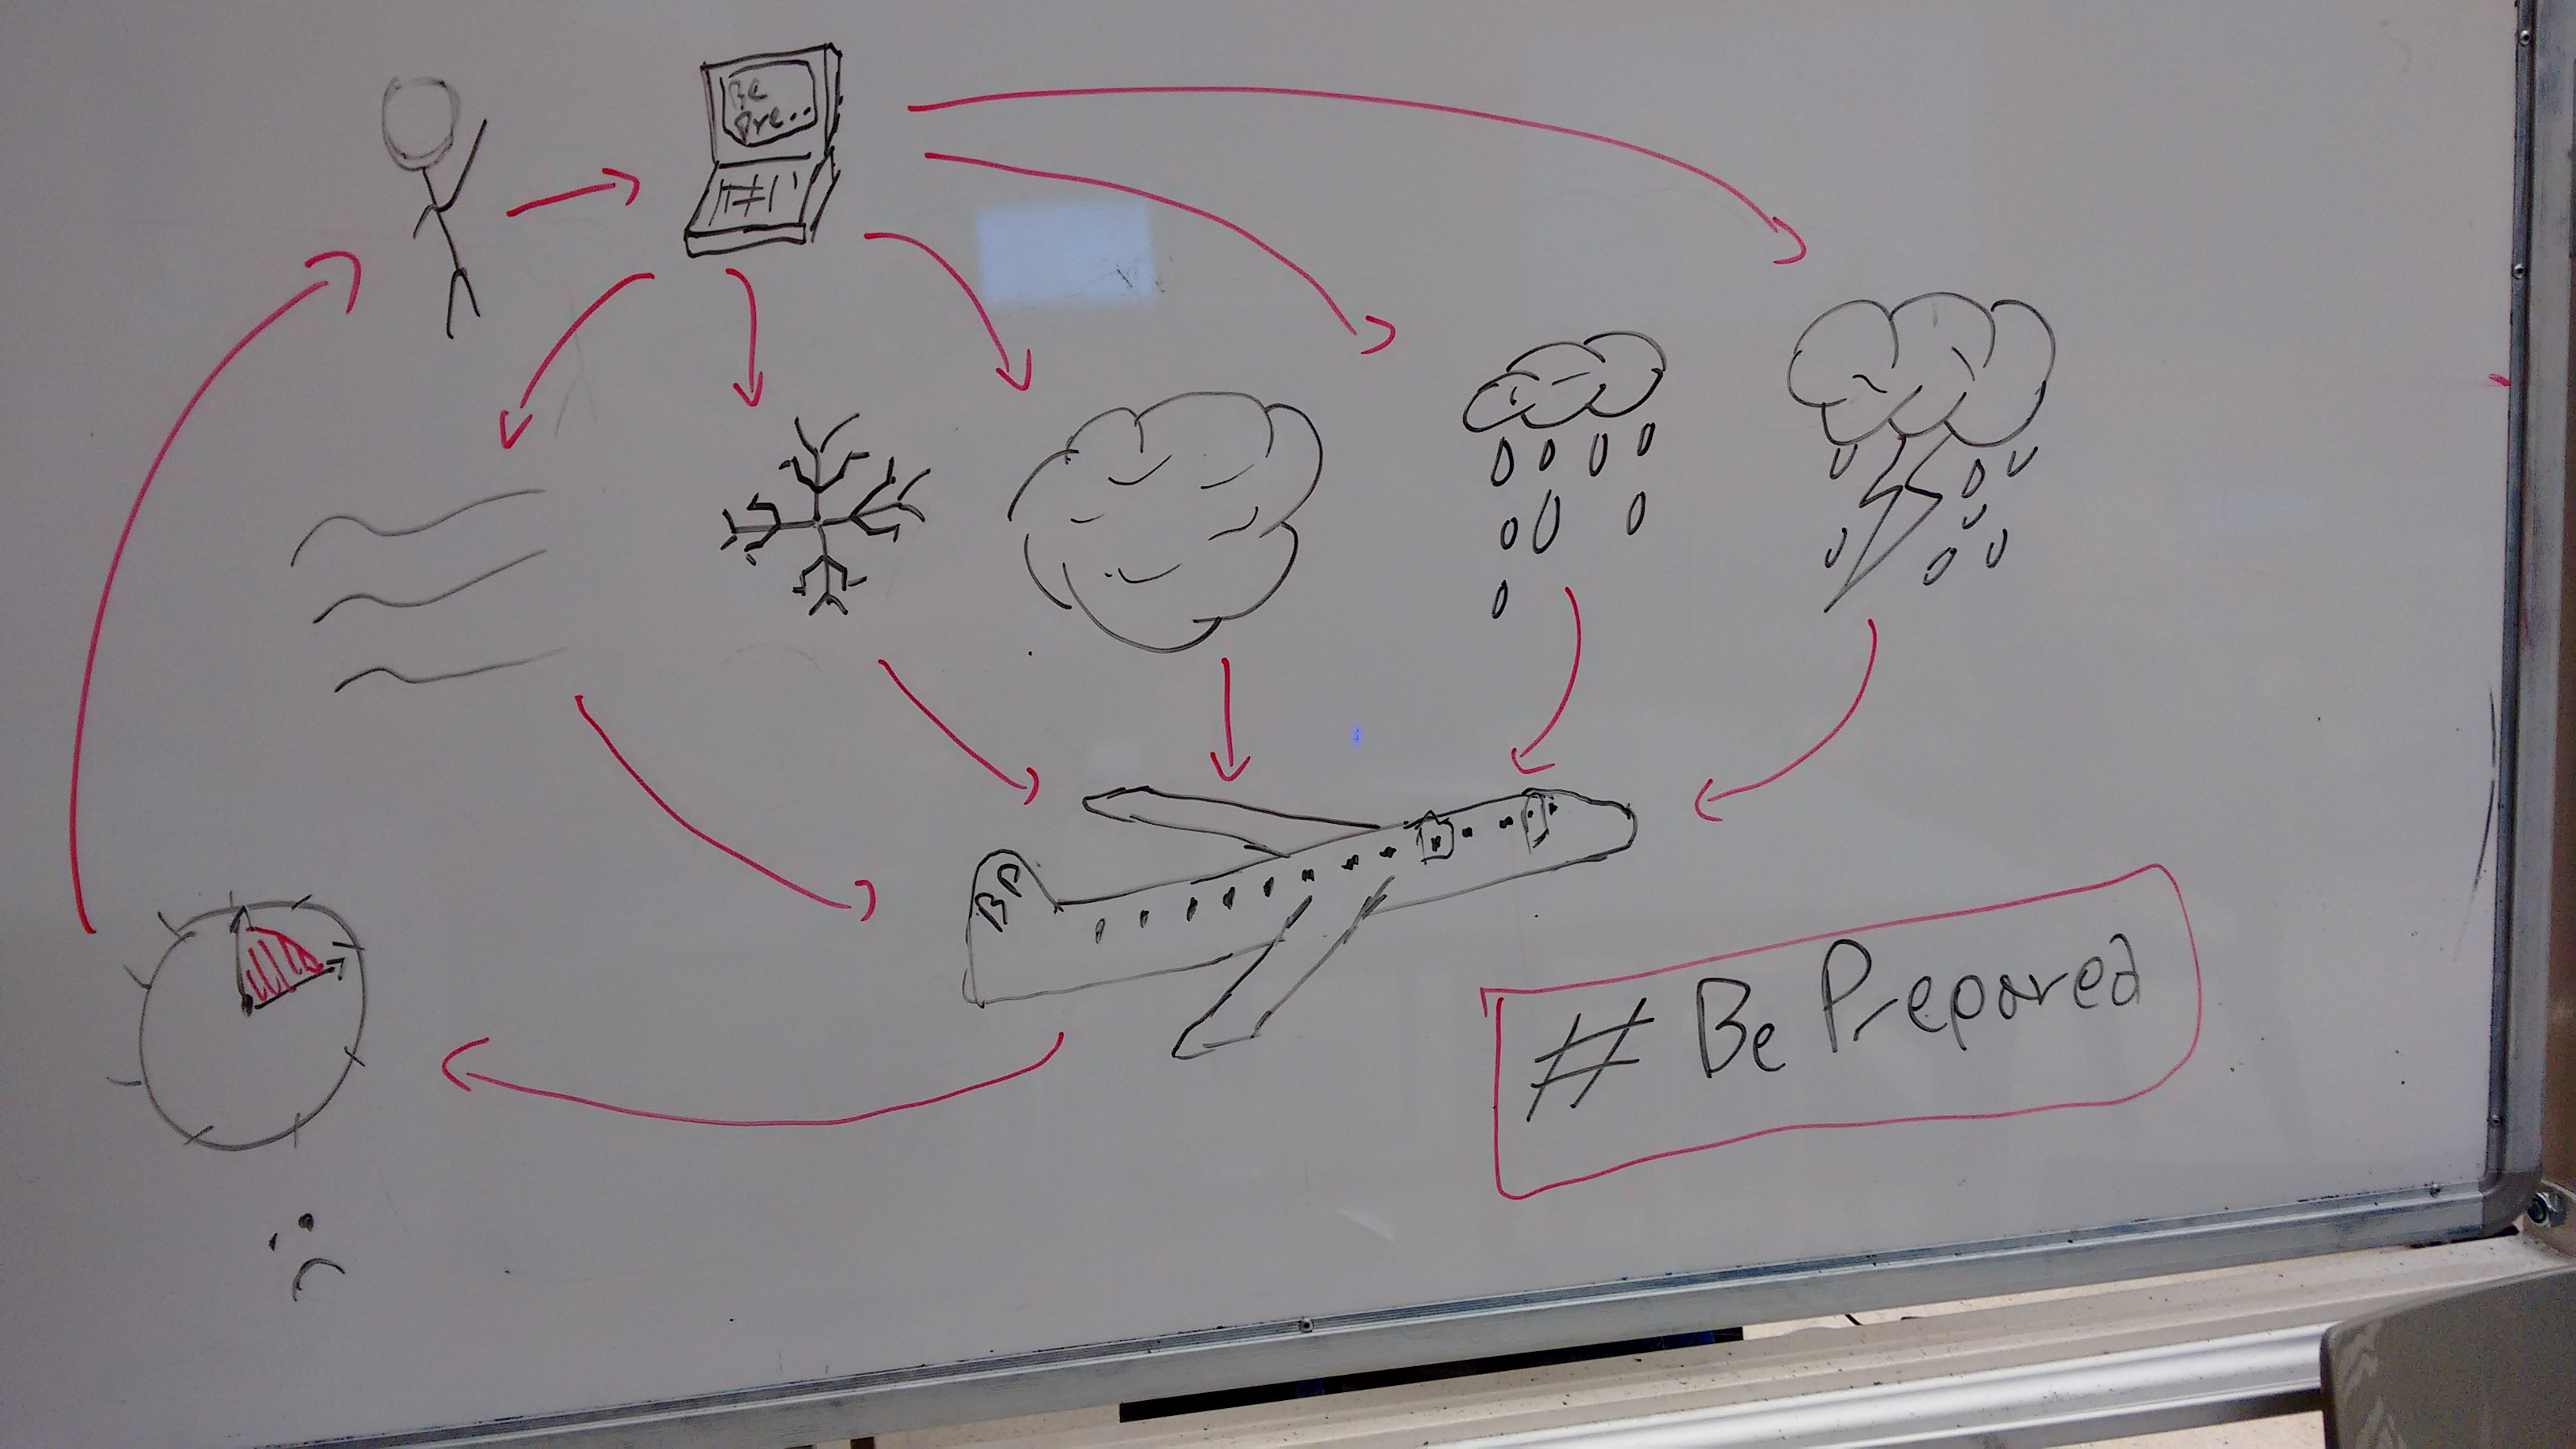 Be
Pre..
BP
# Be Prepared